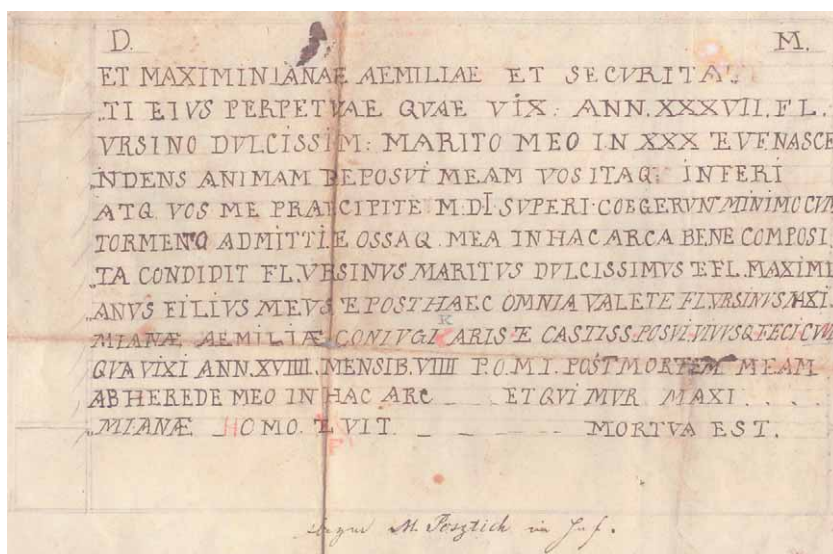 D. M.
ET MAXIMINIANAE AEMILIAE ET SECVRITA
TI EIVS PERPETVAE QVAE VIX: ANN. XXXVII. FL.
VRSINO DVLCISSIM: MARITO MEO IN XXX
NDENS ANIMAM DEPOSVI MEAM VOS ITAQ: INFERI
ATQ VOS ME PRAECIPITE M. DI. SVPERI COEGERVNT MINIMO CVM
TORMENTO ADMITTI E OSSAQ. MEA IN HAC ARCA BENE COMPOSI
TA CONDIDIT FL. VRSINVS MARITVS DVLCISSIMVS E FL. MAXIMI
ANVS FILIVS MEVS E POST HAEC OMNIA VALETE FL. VRSINVS
MIANÆ AEMILIÆ CONIVGI K ARIS E CASTISS. POSVI. VIVVSQ. FECI CVM
QVA VIXI ANN. XVIIII. MENSIB. VIIII P.O.M.I. POST MORTEM MEAM
AB HEREDE MEO IN HAC ARC _ _ ET QVI MVR MAXI . . . .
MIANÆ HOMO. VIT. _ _ _ _ MORTVA EST.
M.